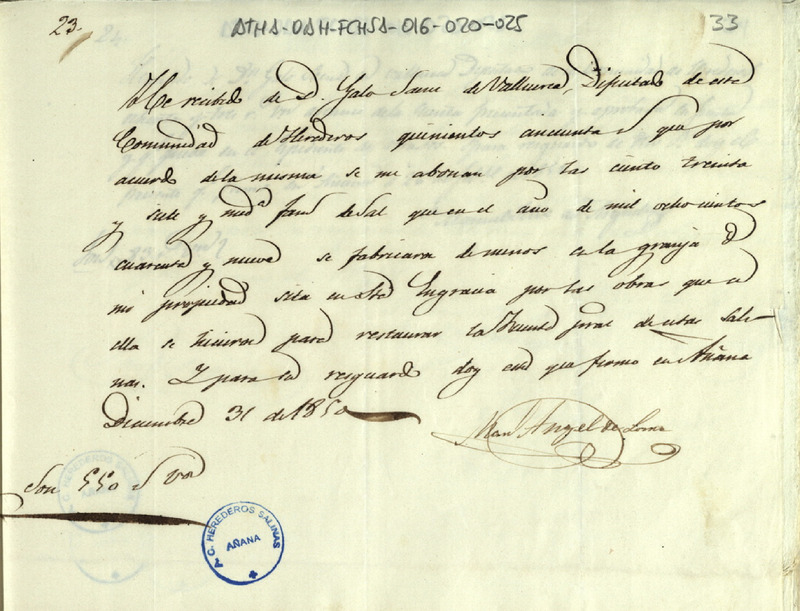 23.
ATHA-DAH-FCHSA-016-020-025
33
He recibido de D. Galo Sanz de Valluerca, Diputado de esta
Comunidad de Herederos quinientos cincuenta rs. que por
acuerdo de la misma se me abonan por las ciento treinta
y siete y medª fans de Sal que en el año de mil ochocientos
cuarenta y nueve se fabricara de menos en la granja de
mi propiedad sita en Sta Engracia por las obras que en
ella se hicieron para restaurar la Fuente pral de estas Sali-
nas. Y para su resguardo doy este que firmo en Añana
Diciembre 31 de 1850
Man Angel de
Son 550 rs von
A. C. HEREDEROS SALINAS
AÑANA